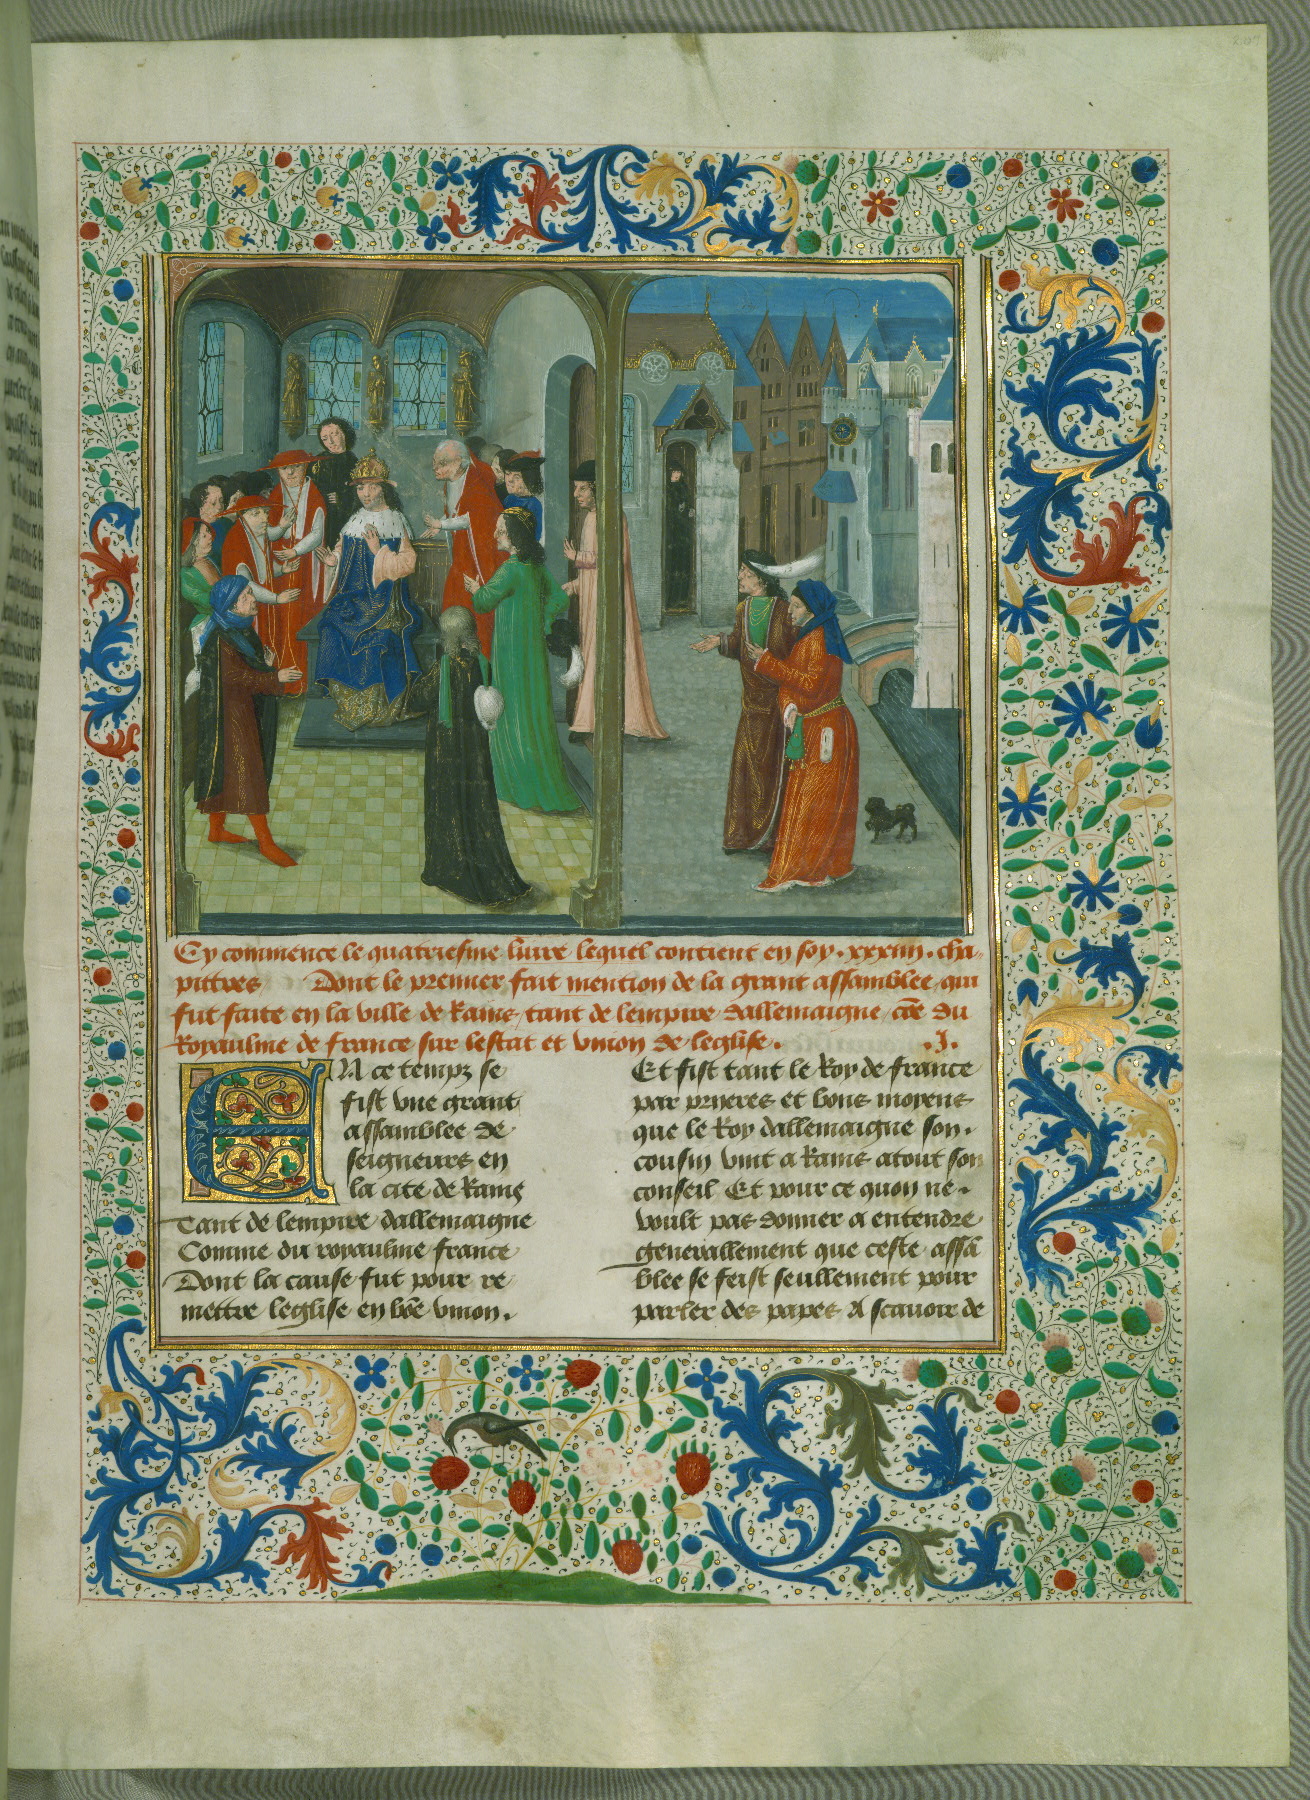 Cy commence le quatriesme livre lequel contient en soy . xxxiiii . cha-
pittres Dont le premier fait mention de la grant assamblee qui
fut faite en la ville de Rains tant de lempire dallemaigne, cõe du
Royaulme de france sur lestat et union de leglise . .I.
EN ce tempz se
fist vne grant
assamblee de
seigneurs en
la cite de Rains
Tant de lempire dallemaigne
Comme du royaulme france
Dont la cause fut pour re
mettre leglise en bõe vnion .
Et fist tant le Roy de france
par prieres et bons moyens
que le Roy dallemaigne son .
cousin vint a Rains atout son
conseil Et pour ce quon ne .
voult pas donner a entendre
generallement que ceste assã
blee se feist seullement pour
parler des papes A scauoir de